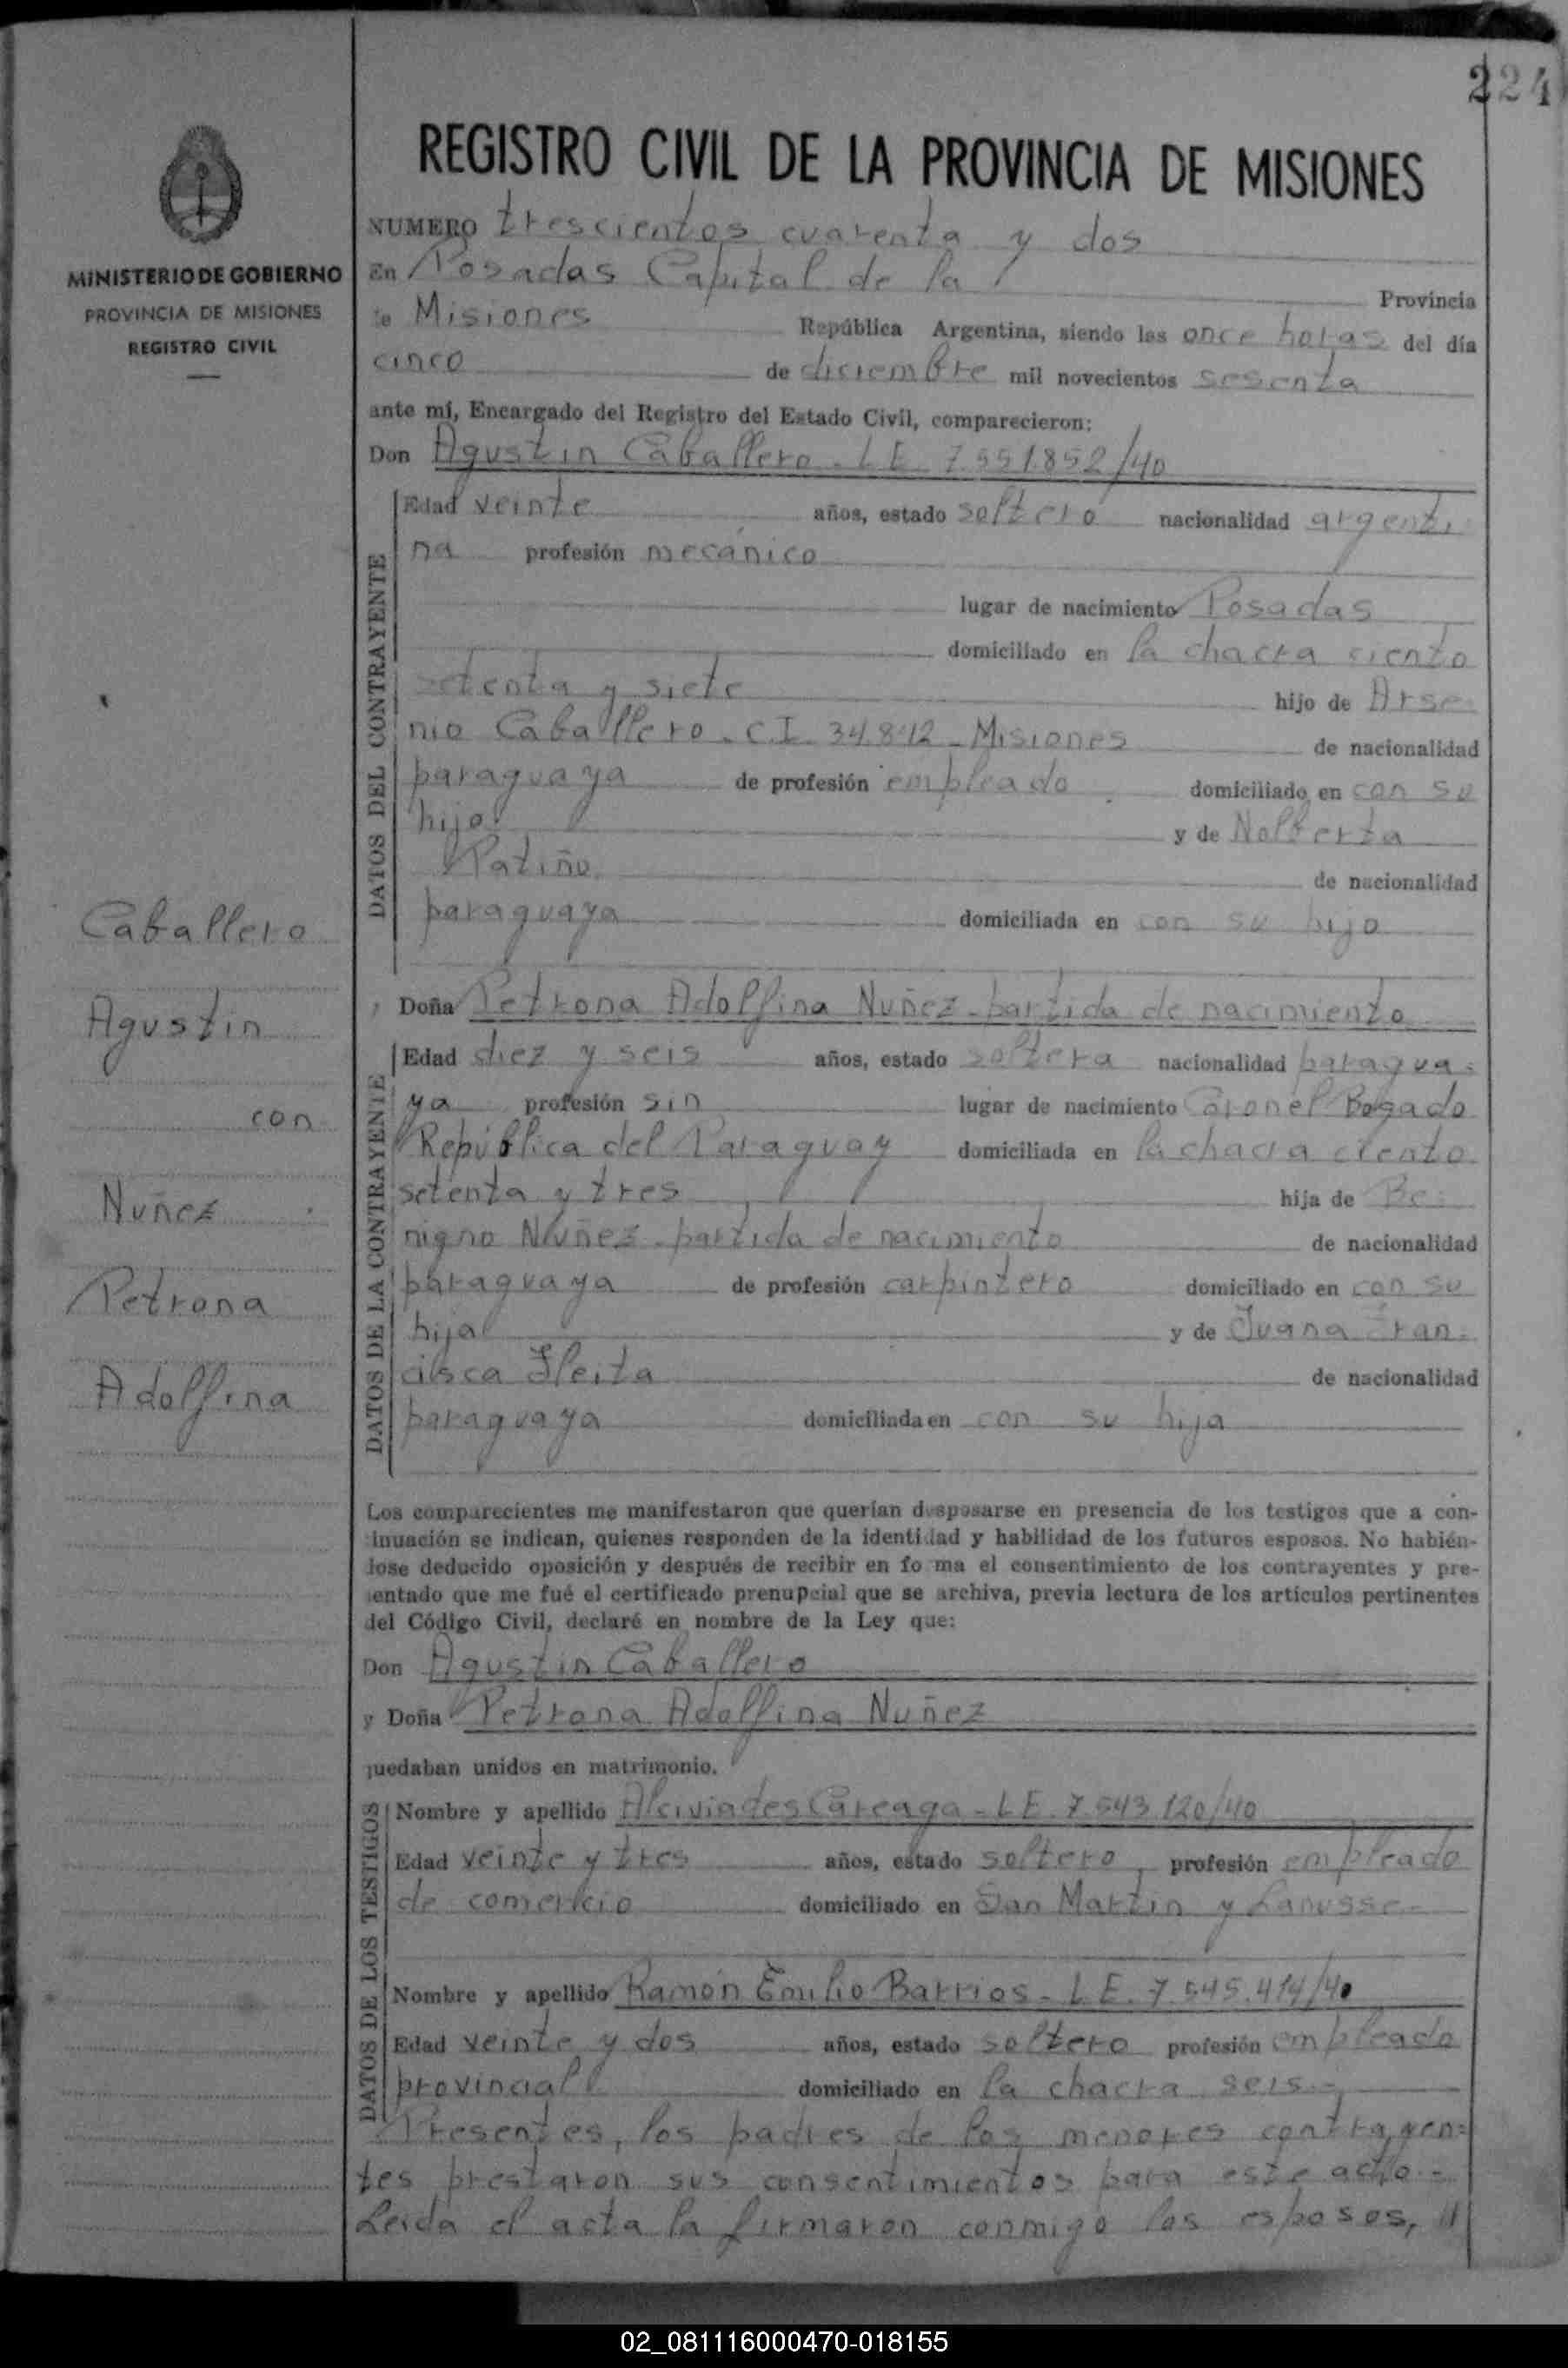 224
REGISTRO CIVIL DE LA PROVINCIA DE MISIONES
MINISTERIO DE GOBIERNO
PROVINCIA DE MISIONES
REGISTRO CIVIL
Caballero
Agustin
con
Nuñez
Petrona
Adolfina
NUMERO trescientos cuarenta y dos
En Posadas Capital de la Provincia
de Misiones República Argentina, siendo las once horas del día
cinco de diciembre mil novecientos sesenta
ante mí, Encargado del Registro del Estado Civil, comparecieron:
Don Agustin Caballero - L E. 7.551.852/40
DATOS DEL CONTRAYENTE
Edad veinte años, estado soltero nacionalidad argenti
na profesión mecánico
lugar de nacimiento Posadas
domiciliado en la chacra ciento
setenta y siete hijo de Arse
nio Caballero - C.I. 34.812 - Misiones de nacionalidad
paraguaya de profesión empleado domiciliado en con su
hijo y de Nolberta
Patiño de nacionalidad
paraguaya domiciliada en con su hijo
y Doña Petrona Adolfina Nuñez - partida de nacimiento
DATOS DE LA CONTRAYENTE
Edad diez y seis años, estado soltera nacionalidad paragua-
ya profesión sin lugar de nacimiento Coronel Bogado
República del Paraguay domiciliada en la chacra ciento
setenta y tres hija de Be-
nigno Nuñez - partida de nacimiento de nacionalidad
paraguaya de profesión carpintero domiciliado en con su
hija y de Juana Fran-
cisca Fleita de nacionalidad
paraguaya domiciliada en con su hija
Los comparecientes me manifestaron que querían desposarse en presencia de los testigos que a con-
tinuación se indican, quienes responden de la identidad y habilidad de los futuros esposos. No habién-
dose deducido oposición y después de recibir en forma el consentimiento de los contrayentes y pre-
sentado que me fué el certificado prenupcial que se archiva, previa lectura de los artículos pertinentes
del Código Civil, declaré en nombre de la Ley que:
Don Agustin Caballero
y Doña Petrona Adolfina Nuñez
quedaban unidos en matrimonio.
DATOS DE LOS TESTIGOS
Nombre y apellido Alciviades Careaga - L E. 7.543.120/40
Edad veinte y tres años, estado soltero, profesión empleado
de comercio domiciliado en San Martin y Lanusse -
Nombre y apellido Ramón Emilio Barrios - L E. 7.545.414/40
Edad veinte y dos años, estado soltero profesión empleado
provincial domiciliado en la chacra seis -
Presentes, los padres de los menores contrayen=
tes prestaron sus consentimientos para este acto -
Leida el acta la firmaron conmigo los esposos, 
02_081116000470-018155